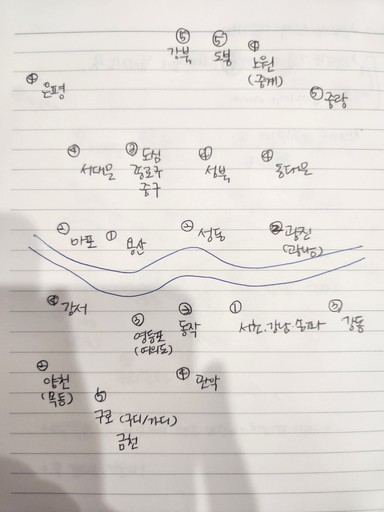 ⑤ ⑤ ④
강북 도봉 노원
(중계)
④ 은평
⑤ 중랑
④ ③ 도심 ④ ④
서대문 종로구 성북 동대문
중구
② 마포 ① 용산 ② 성동 ② 광진
(광나루)
④ 강서
③ ③ ① ③
영등포 동작 서초.강남.송파 강동
(여의도)
양천 ④ 관악
(목동) ⑤
구로 (구디/가디)
금천